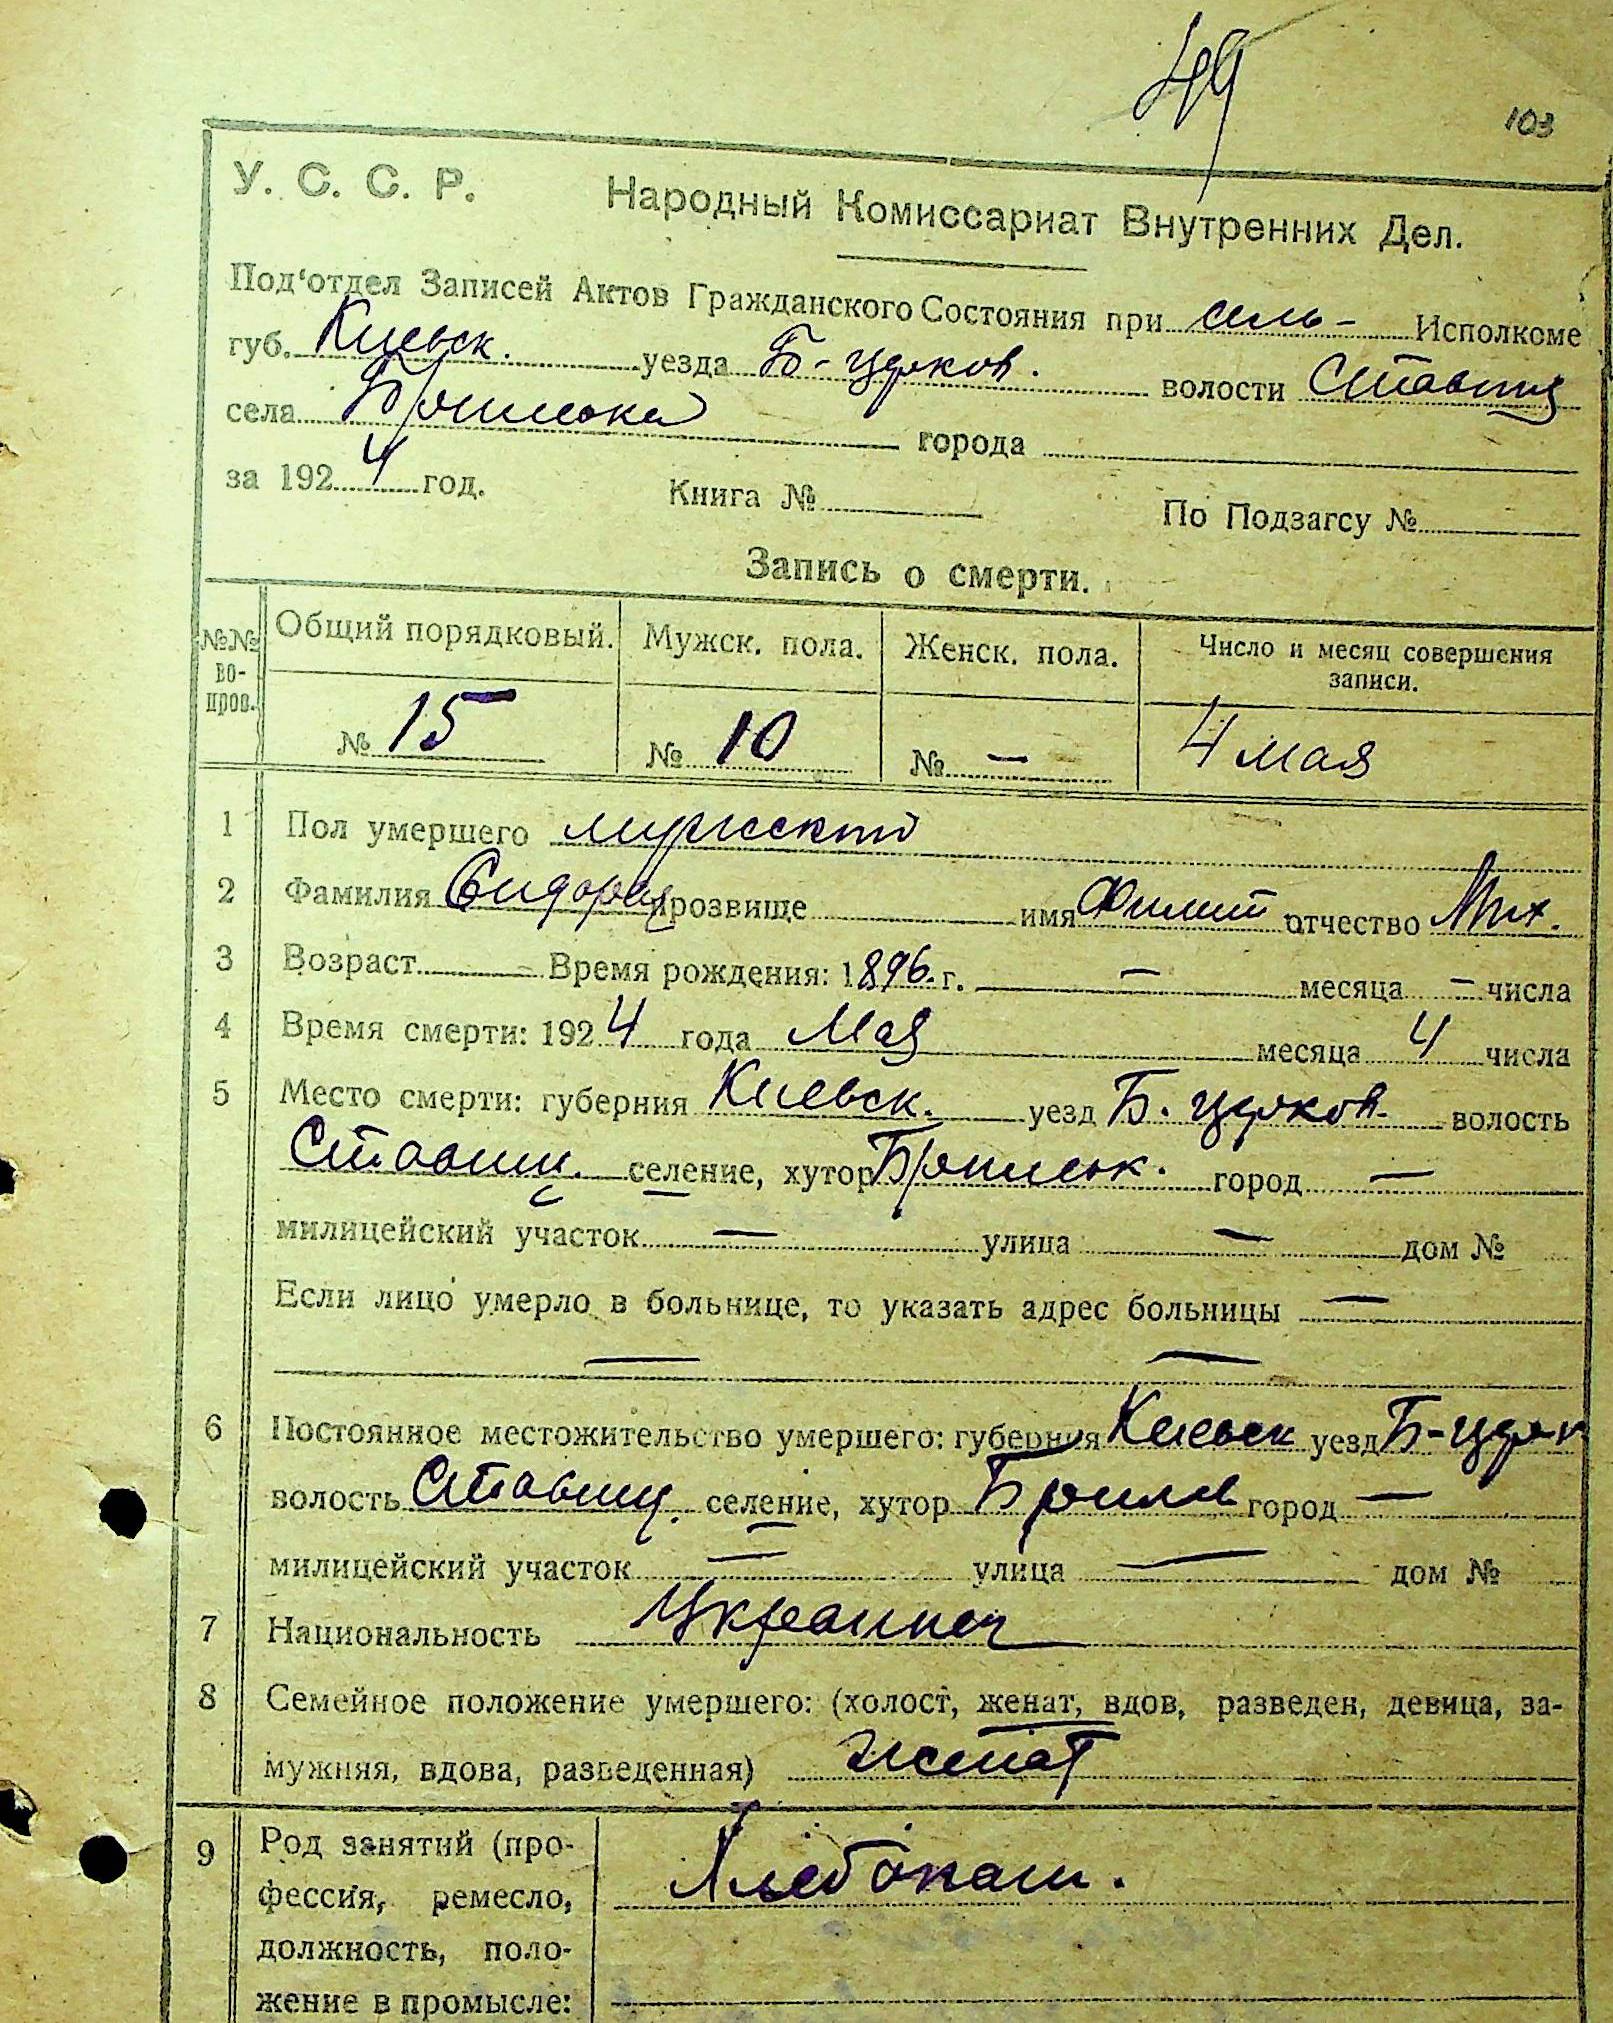 49
103
У. С. С. Р. Народный Комиссариат Внутренних Дел.
Под'отдел Записей Актов Гражданского Состояния при сель- Исполкоме
губ. Киевск. уезда Б-церков. волости Ставищ
села города
за 1924 год. Книга № По Подзагсу №
Запись о смерти.
№№ вопров. Общий порядковый. Мужск. пола. Женск. пола. Число и месяц совершения записи.
№ 15 № 10 № — 4 мая
1 Пол умершего мужской
2 Фамилия прозвище имя Филип отчество Мих.
3 Возраст Время рождения: 1896. г. — месяца — числа
4 Время смерти: 1924 года Мая месяца 4 числа
5 Место смерти: губерния Киевск. уезд Б. церков. волость
Ставищ. селение, хутор город —
милицейский участок — улица — дом №
Если лицо умерло в больнице, то указать адрес больницы —
— —
6 Постоянное местожительство умершего: губерния Киевск уезд Б-церк
волость Ставищ. селение, хутор город —
милицейский участок — улица — дом №
7 Национальность Украинец
8 Семейное положение умершего: (холост, женат, вдов, разведен, девица, за-
мужняя, вдова, разведенная) женат
9 Род занятий (про-
фессия, ремесло,
должность, поло-
жение в промысле:
Хлебопаш.